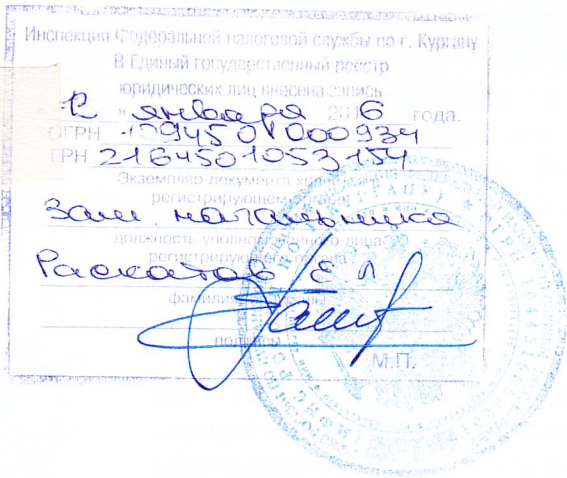 Инспекция Федеральной налоговой службы по г. Кургану
В Единый государственный реестр
юридических лиц внесена запись
12 " января 2016 года.
ОГРН 1094501000934
ГРН 2164501053154
Экземпляр документа
регистрирующем
Зам. начальника
должность уполномоченного лица
регистрирующего
Раскатов Е Л
фамилия
подпись
М.П.